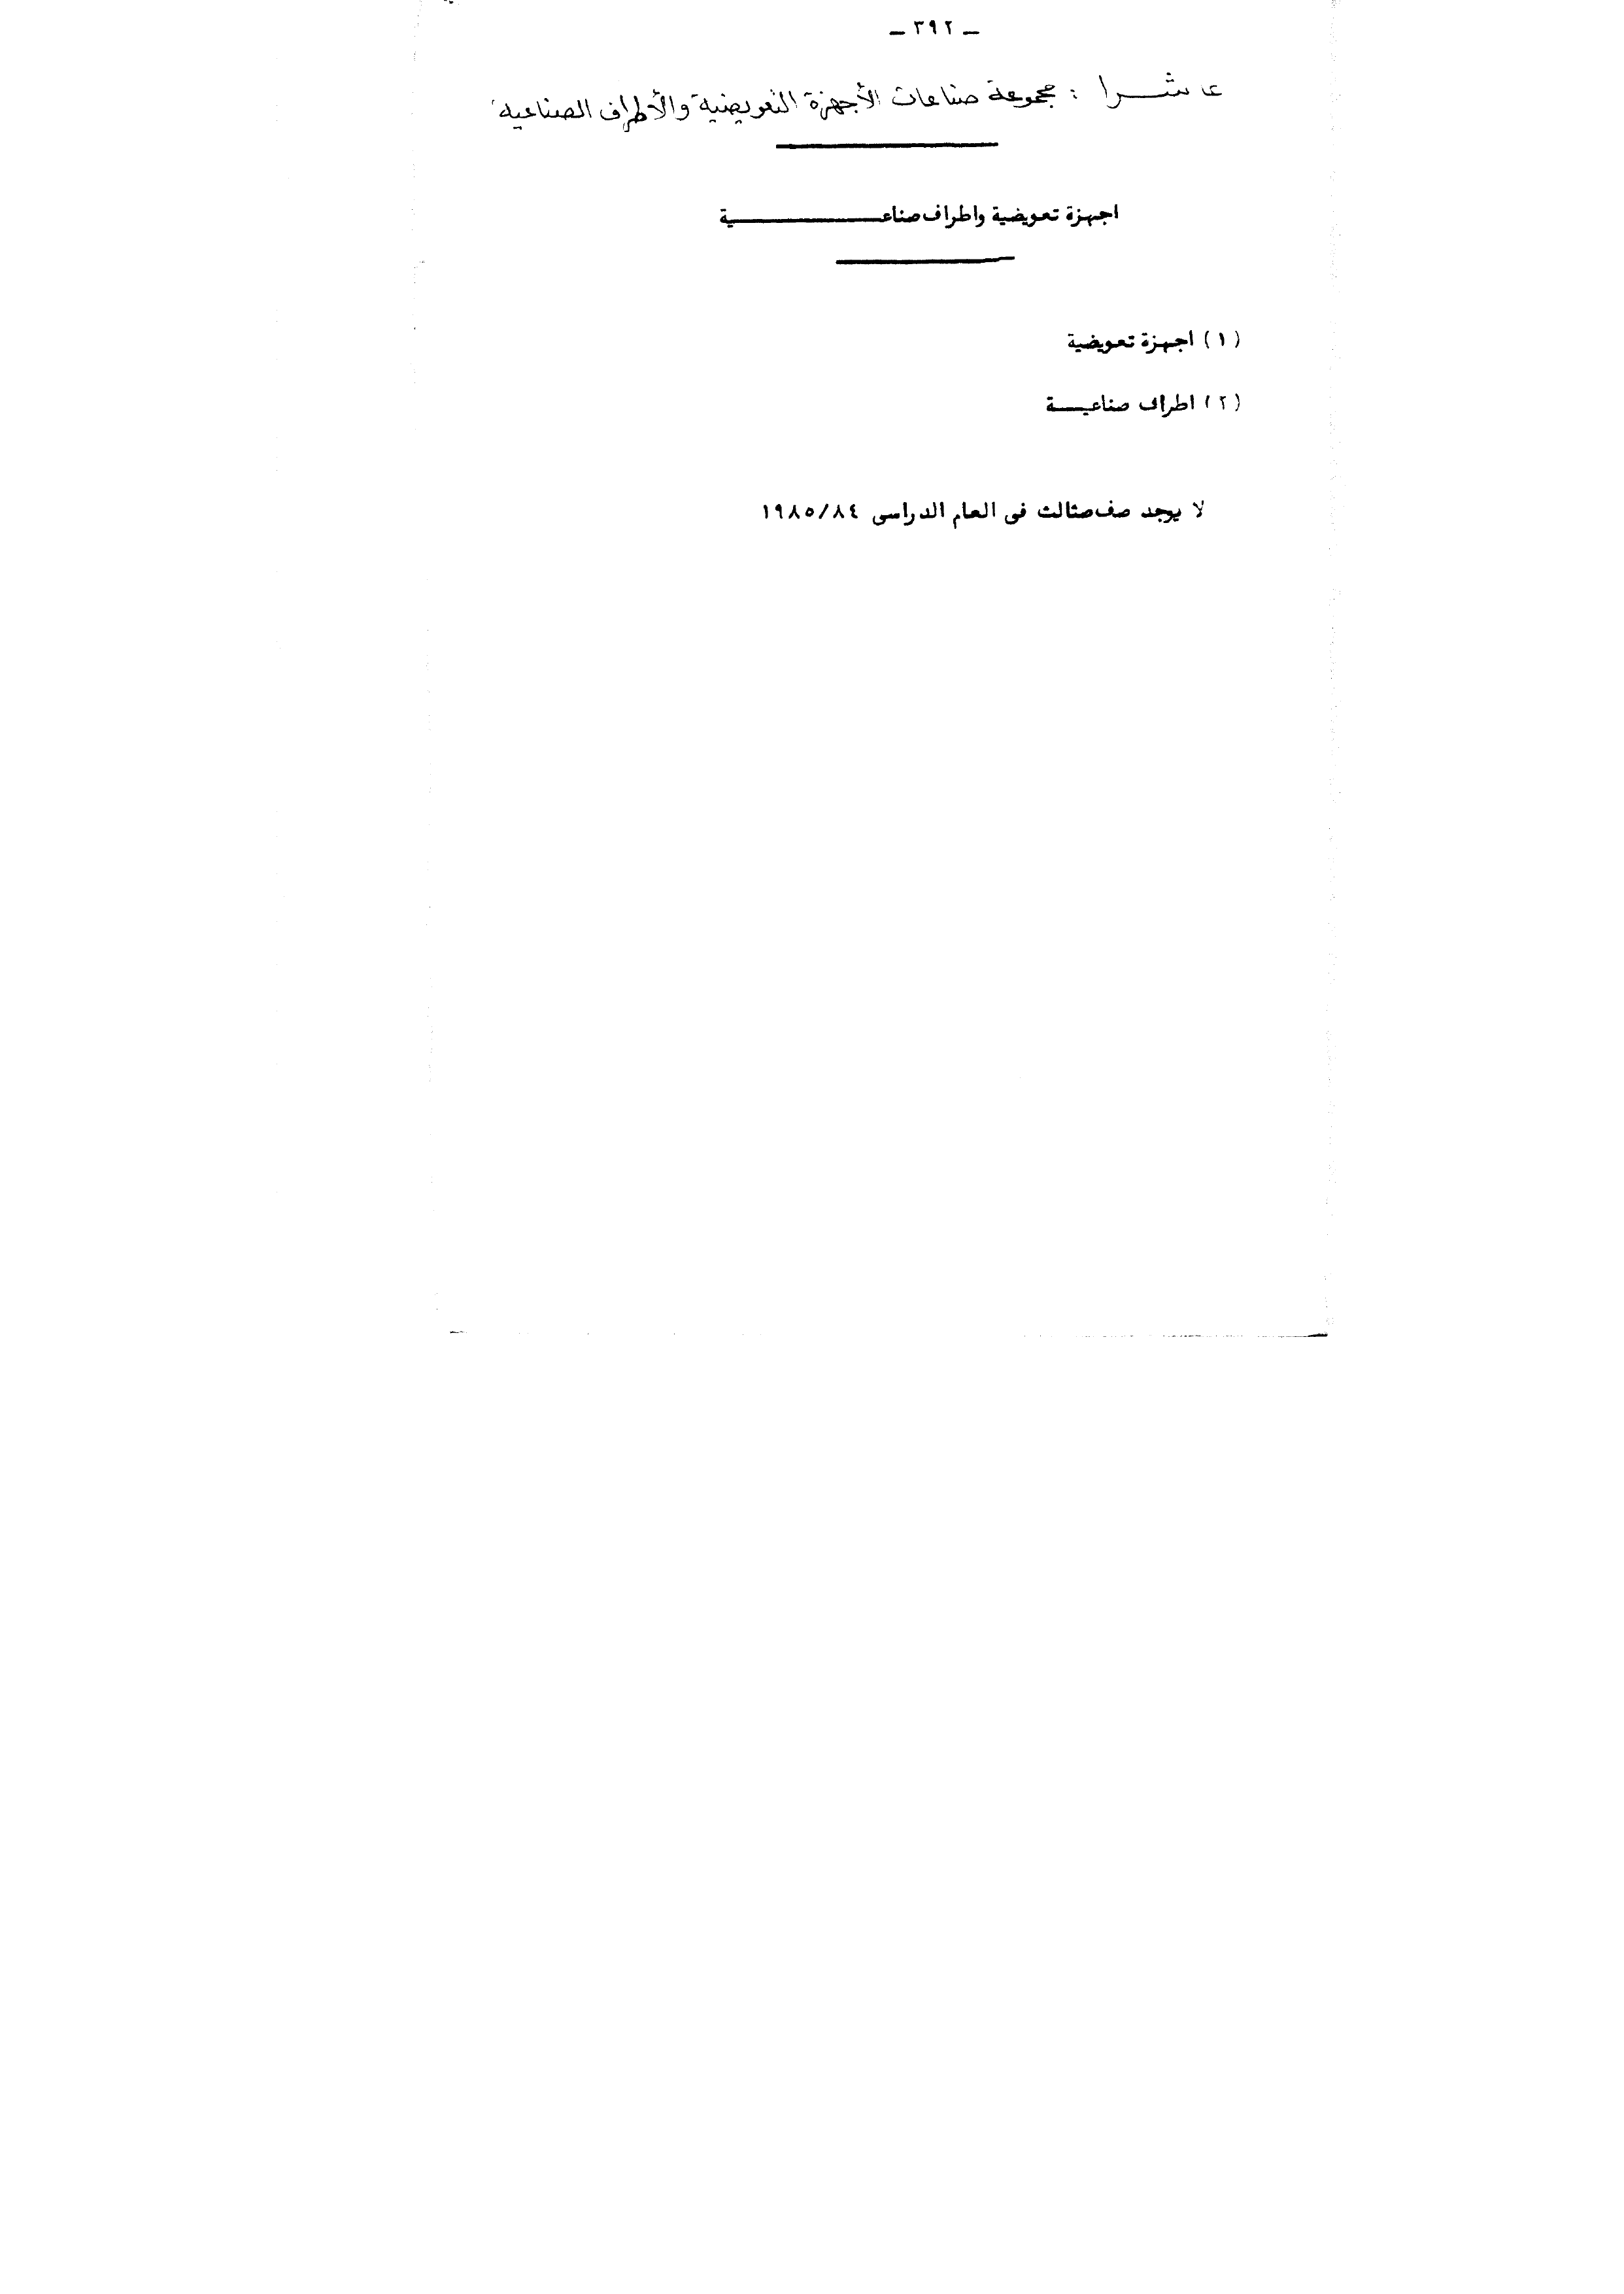 ـ ٣٩٢ ـ
عاشرا : مجموعة صناعات الأجهزة التعويضية والأطراف الصناعية
اجهزة تعويضية واطراف صناعـــــــــــية
(١) اجهزة تعويضية
(٢) اطراف صناعيـــة
لا يوجد صف ثالث فى العام الدراسى ١٩٨٥/٨٤